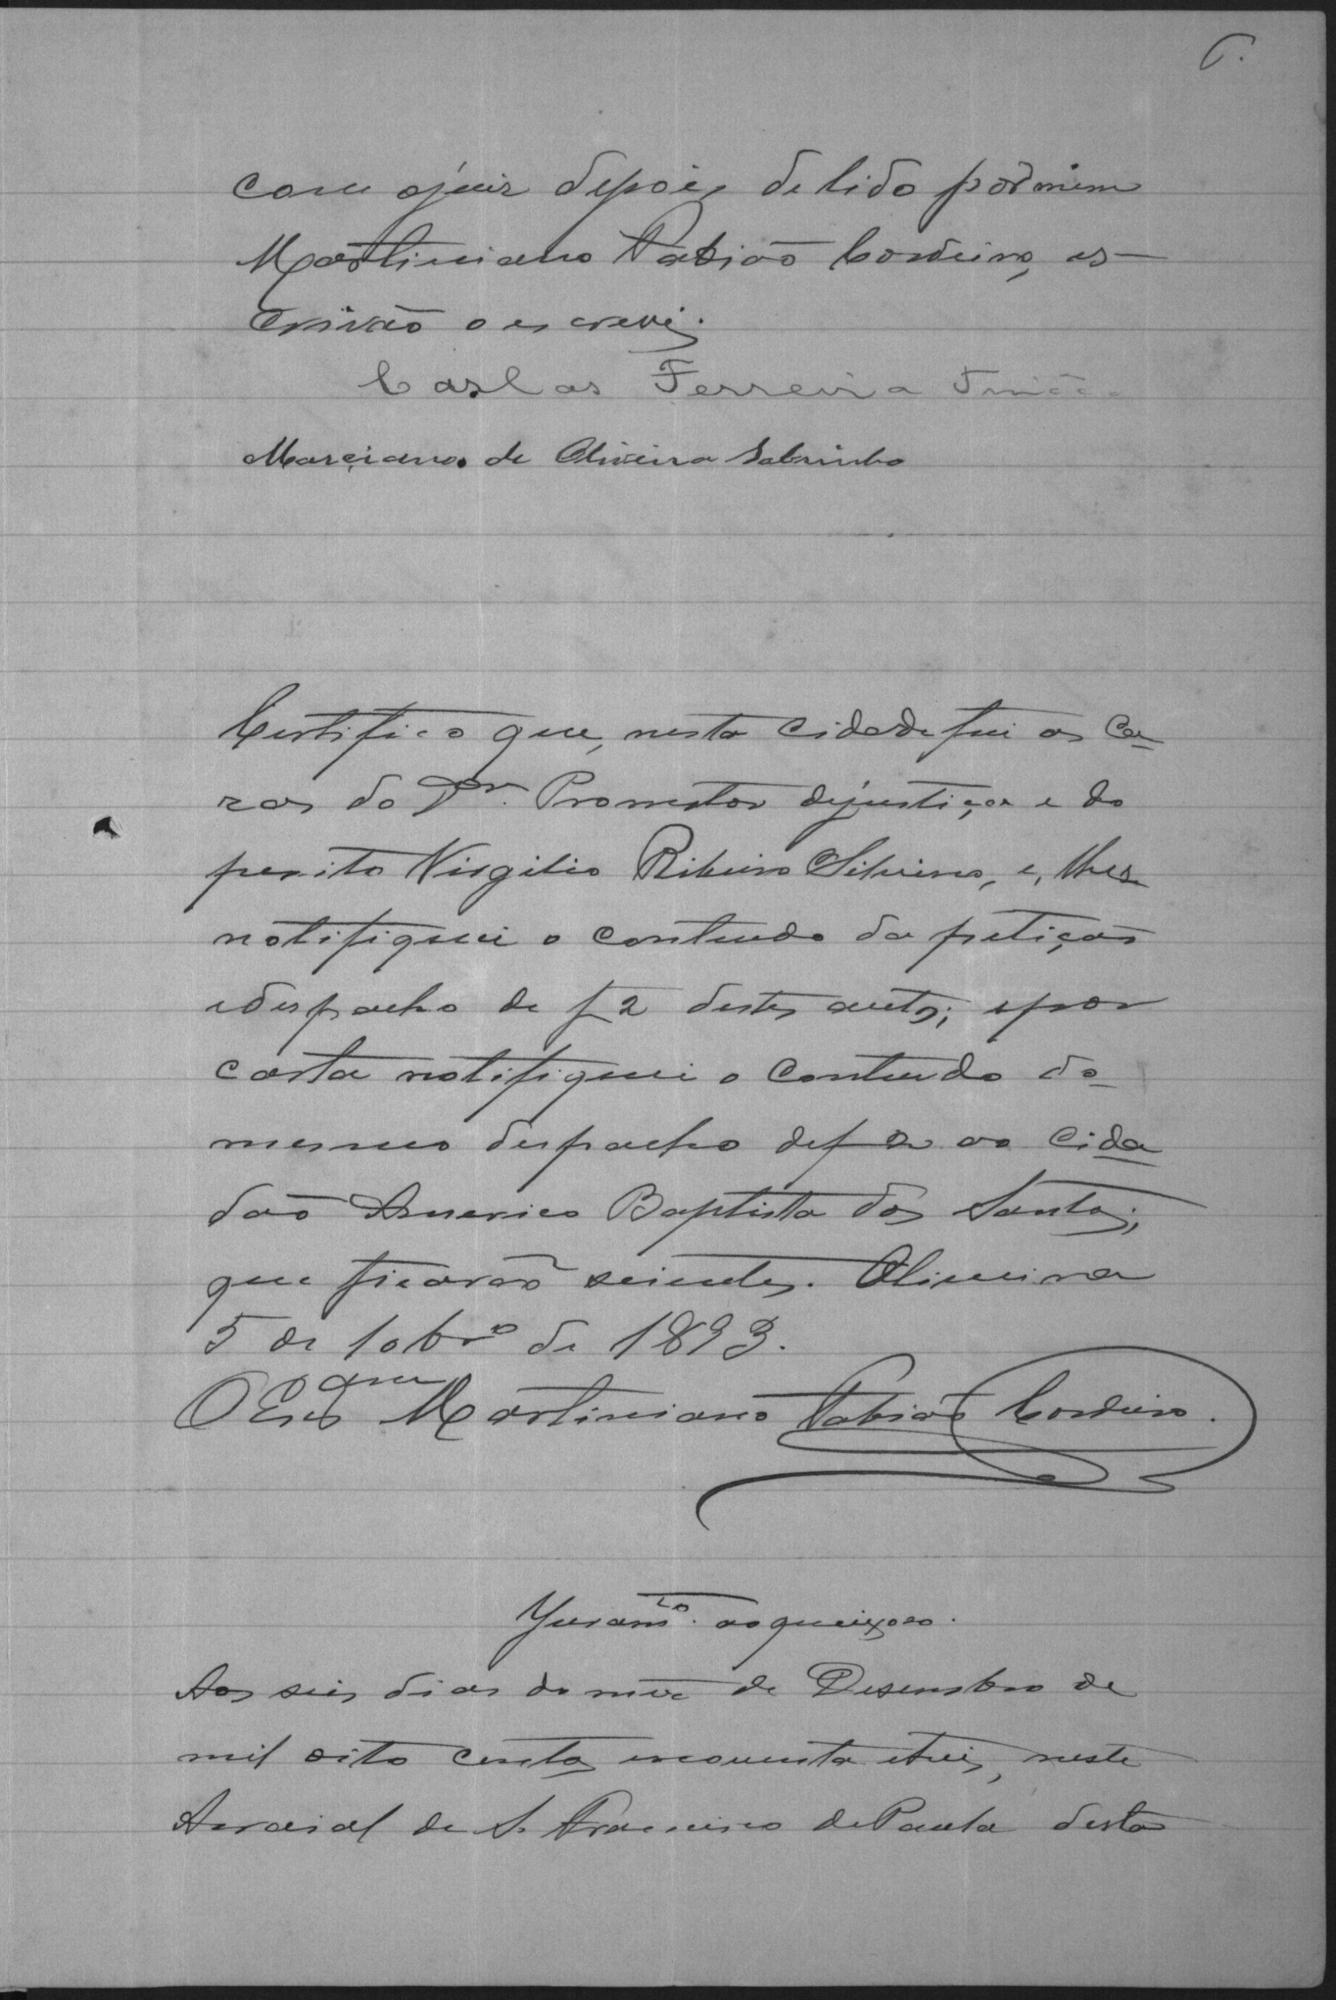 6.
com o juiz depois de lido por mim
Martiniano Fabião Cordeiro, es-
crivão o escrevi.
Carlos Ferreira
Marciano de Oliveira Sobrinho
Certifico que, nesta cidade fui as ca-
zas do Dr. Promotor de justiça e do
perito Virgilio Ribeiro Silveira, e, lhes
notifiquei o contendo da petição
e despacho de f 2 destes autos; e por
carta notifiquei o contendo do
mesmo despacho de f 2 ao cida
dão Americo Baptista dos Santos;
que ficarão scientes. Oliveira
5 de 10brº de 1893.
O Esc Martiniano Fabião Cordeiro.
Juramto. ao queixoso.
Aos seis dias do mez de Desembro de
mil oito centos e noventa e tres, neste
Arraial de S. Francisco de Paula desta